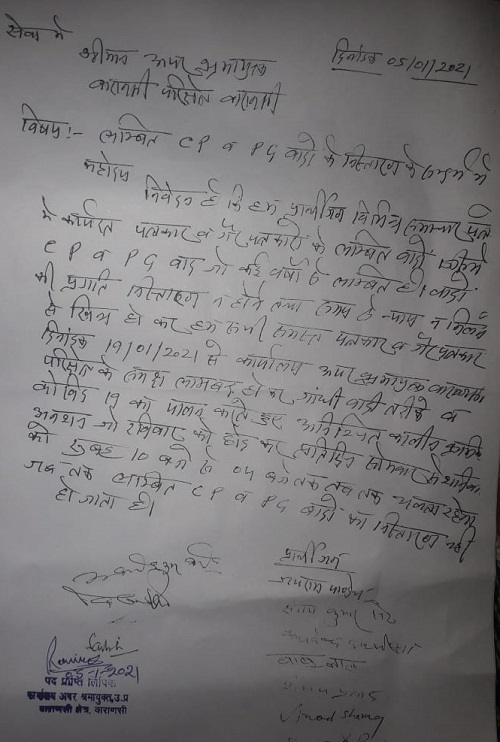 सेवा में
श्रीमान अपर श्रमायुक्त दिनांक 05/01/2021
वाराणसी परिक्षेत्र वाराणसी
विषय:- लम्बित CP व PG वादों के निस्तारण के सम्बन्ध में
महोदय
निवेदन है कि हम प्रार्थीगण विभिन्न समाचार पत्रों
में कार्यरत पत्रकार व गैर पत्रकारों के लम्बित वादों जिसमें
CP व PG वाद जो कई वर्षों से लम्बित है। वादों
की प्रगति निस्तारण न होने तथा समय से न्याय न मिलने
से खिन्न हो कर हम सभी समस्त पत्रकार व गैर पत्रकार
दिनांक 19/01/2021 से कार्यालय अपर श्रमायुक्त वाराणसी
परिक्षेत्र के समक्ष लामबद्ध हो कर गांधी वादी तरीके व
कोविड 19 का पालन करते हुए अनिश्चित कालीन क्रमिक
अनशन जो रविवार को छोड़ कर प्रतिदिन सोमवार से शनिवार
को सुबह 10 बजे से 04 बजे तक तब तक चलता रहेगा
जब तक लम्बित CP व PG वादों का निस्तारण नहीं
हो जाता है।
प्रार्थीगण
जयराम पाण्डेय
संजय कुमार
Vinod Sharma
05-1-2021
पद प्राप्ति लिपिक
कार्यालय अपर श्रमायुक्त,उ.प्र
वाराणसी क्षेत्र, वाराणसी